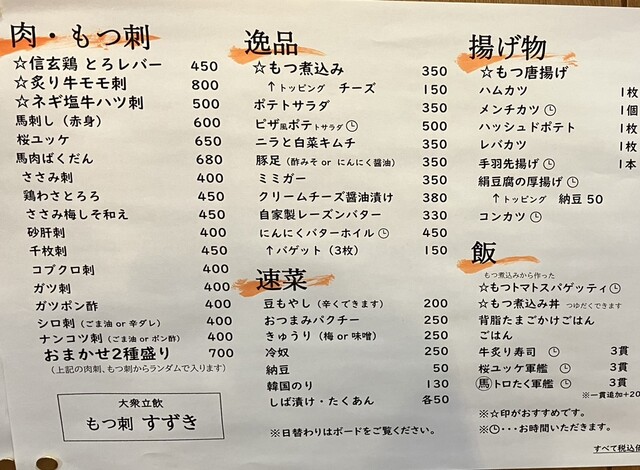 肉・もつ刺
☆信玄鶏 とろレバー 450
☆炙り牛モモ刺 800
☆ネギ塩牛ハツ刺 500
馬刺し(赤身) 600
桜ユッケ 650
馬肉ばくだん 680
ささみ刺 400
鶏わさとろろ 450
ささみ梅しそ和え 450
砂肝刺 400
千枚刺 450
コブクロ刺 400
ガツ刺 400
ガツポン酢 400
シロ刺(ごま油 or 辛ダレ) 400
ナンコツ刺(ごま油 or ポン酢) 400
おまかせ2種盛り 700
(上記の肉刺、もつ刺からランダムで入ります)
大衆立飲
もつ刺 すずき
逸品
☆もつ煮込み 350
↑トッピング チーズ 150
ポテトサラダ 350
ピザ風ポテトサラダ🕒 500
ニラと白菜キムチ 350
豚足(酢みそ or にんにく醤油) 350
ミミガー 350
クリームチーズ醤油漬け 380
自家製レーズンバター 330
にんにくバターホイル🕒 450
↑バゲット(3枚) 150
速菜
豆もやし(辛くできます) 200
おつまみパクチー 250
きゅうり(梅 or 味噌) 250
冷奴 250
納豆 50
韓国のり 130
しば漬け・たくあん 各50
※日替わりはボードをご覧ください。
揚げ物
☆もつ唐揚げ
ハムカツ 1枚
メンチカツ🕒 1個
ハッシュドポテト 1枚
レバカツ 1枚
手羽先揚げ🕒 1本
絹豆腐の厚揚げ🕒
↑トッピング 納豆 50
コンカツ🕒
飯
もつ煮込から作った
☆もつトマトスパゲッティ🕒
☆もつ煮込み丼 つゆだくできます
背脂たまごかけごはん
ごはん
牛炙り寿司 🕒 3貫
桜ユッケ軍艦 🕒 3貫
馬トロたく軍艦 🕒 3貫
※一貫追加+20
※☆印がおすすめです。
※🕒・・・お時間いただきます。
すべて税込価